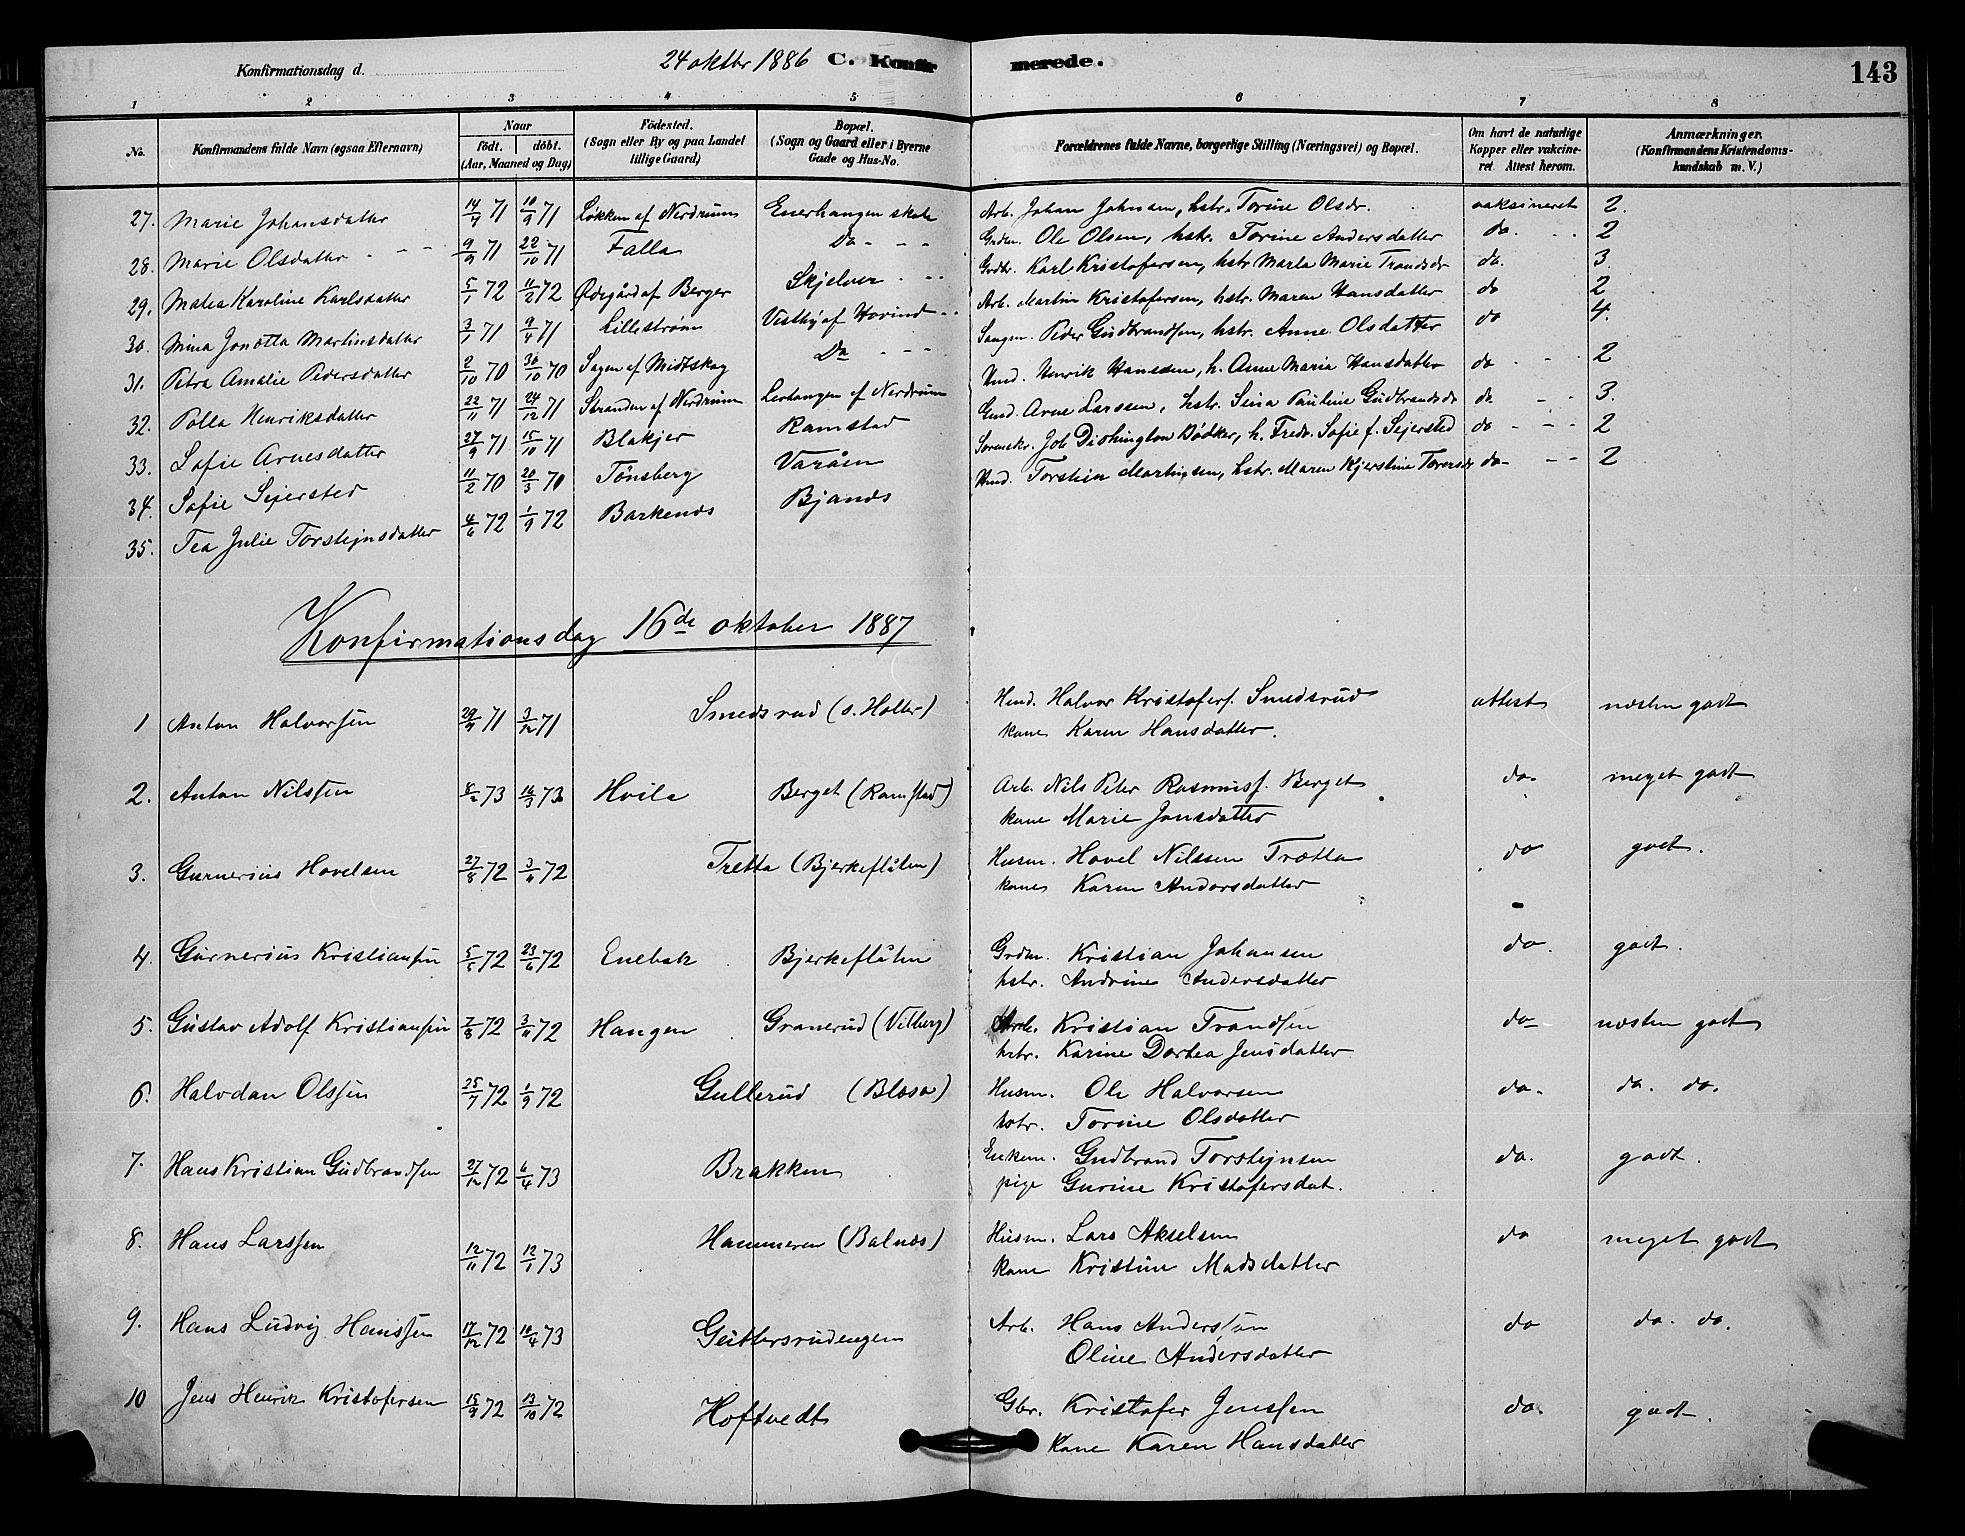 Konfirmationsdag d. 24 oktbr 1886 C. Konfirmerede. 143
1 2 3 4 5 6 7 8
No. Konfirmandens fulde Navn (ogsaa Efternavn) Naar født. døbt. (Aar, Maaned og Dag) Fødested. (Sogn eller By og paa Landet tillige Gaard) Bopæl. (Sogn og Gaard eller i Byerne Gade og Hus-No. Forældrenes fulde Navne, borgerlige Stilling (Næringsvei) og Bopæl. Om havt de naturlige Kopper eller vakcineret. Attest herom. Anmærkninger. (Konfirmandens Kristendomskundskab m. V.)
27. Marie Johansdatter 14/7 71 10/9 71 Løkken af Nerdrum Enerhangen skole Arb. Johan Johnsen, hstr. Torine Olsdr. vaksineret 2.
28. Marie Olsdatter 9/9 71 22/10 71 Falla Do Grdm. Ole Olsen, hstr. Torine Andersdatter do. 2
29. Matea Karoline Karlsdatter 5/1 72 11/2 72 Ødegård af Berger Skjelver Grdbr. Karl Kristofersen, hstr Marta Marie Trondsdr do. 3
30. Mina Jonette Martinsdatter 3/1 71 9/4 71 Lillestrøm Vestby af Hovind Arb. Martin Kristofersen, hstr. Maren Hansdatter do 2
31. Petra Amalie Pedersdatter 2/10 70 30/10 70 Sagen af Midtskog Do Peder Gudbrandsen, hstr. Anne Olsdatter do 4.
32. Polla Henriksdatter 22/11 71 24/12 71 Stranden af Nerdrum Lerhangen af Nerdrum Hmd. Henrik Hanssen, h. Anne Maria Hansdatter do 2
33. Sofie Arnesdatter 27/9 71 15/10 71 Blakjer Ramstad Gmd. Arne Larssen, hstr. Sina Pauline Gudbrandsdr do 3.
34. Sofie Sejersted 11/2 70 20/3 70 Tønsberg Varåen Sorenskr. Job Bødker, h. Fredr. Sofie f. Sejersted do 2
35. Tea Julie Torstejnsdatter 4/6 72 1/9 72 Barkenes Bjanes Hmd. Torstein Martinsen, hstr. Maren Kjerstine Toversdr do 2
Konfirmationsdag 16de oktober 1887
1 Anton Halvorsen 29/9 71 3/12 71 Smedsrud (s. Holter) Hmd. Halvor Kristofers. Smedsrud attest næsten godt
kone Karen Hansdatter.
2. Anton Nilssen 8/2 73 16/3 73 Hvile Berget (Ramstad) Arb. Nils Peter Rasmuss. Berget do. meget godt
kone Marie Jonsdatter
3. Gunnerius Hovelsen 27/8 72 3/11 72 Tretta (Bjerkeflåten) Husm. Hovel Nilssen Trætta do godt.
kone Karen Andersdatter
4. Gunnerius Kristiansen 5/5 72 23/6 72 Enebak Bjerkeflåten Grdm. Kristian Johansen do. godt.
hstr. Andrine Andersdatter
5. Gustav Adolf Kristiansen 7/8 72 3/11 72 Haugen Granerud (Vilberg) Arb. Kristian Trondsen do næsten godt
hstr. Karine Dortea Jensdatter
6. Halvdan Olssen 25/7 72 1/9 72 Gullerud (Blæsa) Husm. Ole Halvorsen do. do. do.
hstr. Torine Olsdatter
7. Hans Kristian Gudbrandsen 27/12 72 6/4 73 Brakken Enkem. Gudbrand Torstejnsen do. godt.
pige Gurine Kristofersdat.
8. Hans Larssen 12/11 72 12/1 73 Hammeren (Balnæs) Husm. Lars Akselsen do meget godt
kone Kristine Madsdatter
9. Hans Ludvig Hanssen 17/12 72 10/4 73 Guttersrudengen Arb. Hans Anderssen do do. do.
Oline Andersdatter
10 Jens Henrik Kristofersen 15/9 72 13/10 72 Hoftvedt Gbr. Kristofer Jenssen do. godt.
Kone Karen Hansdatter